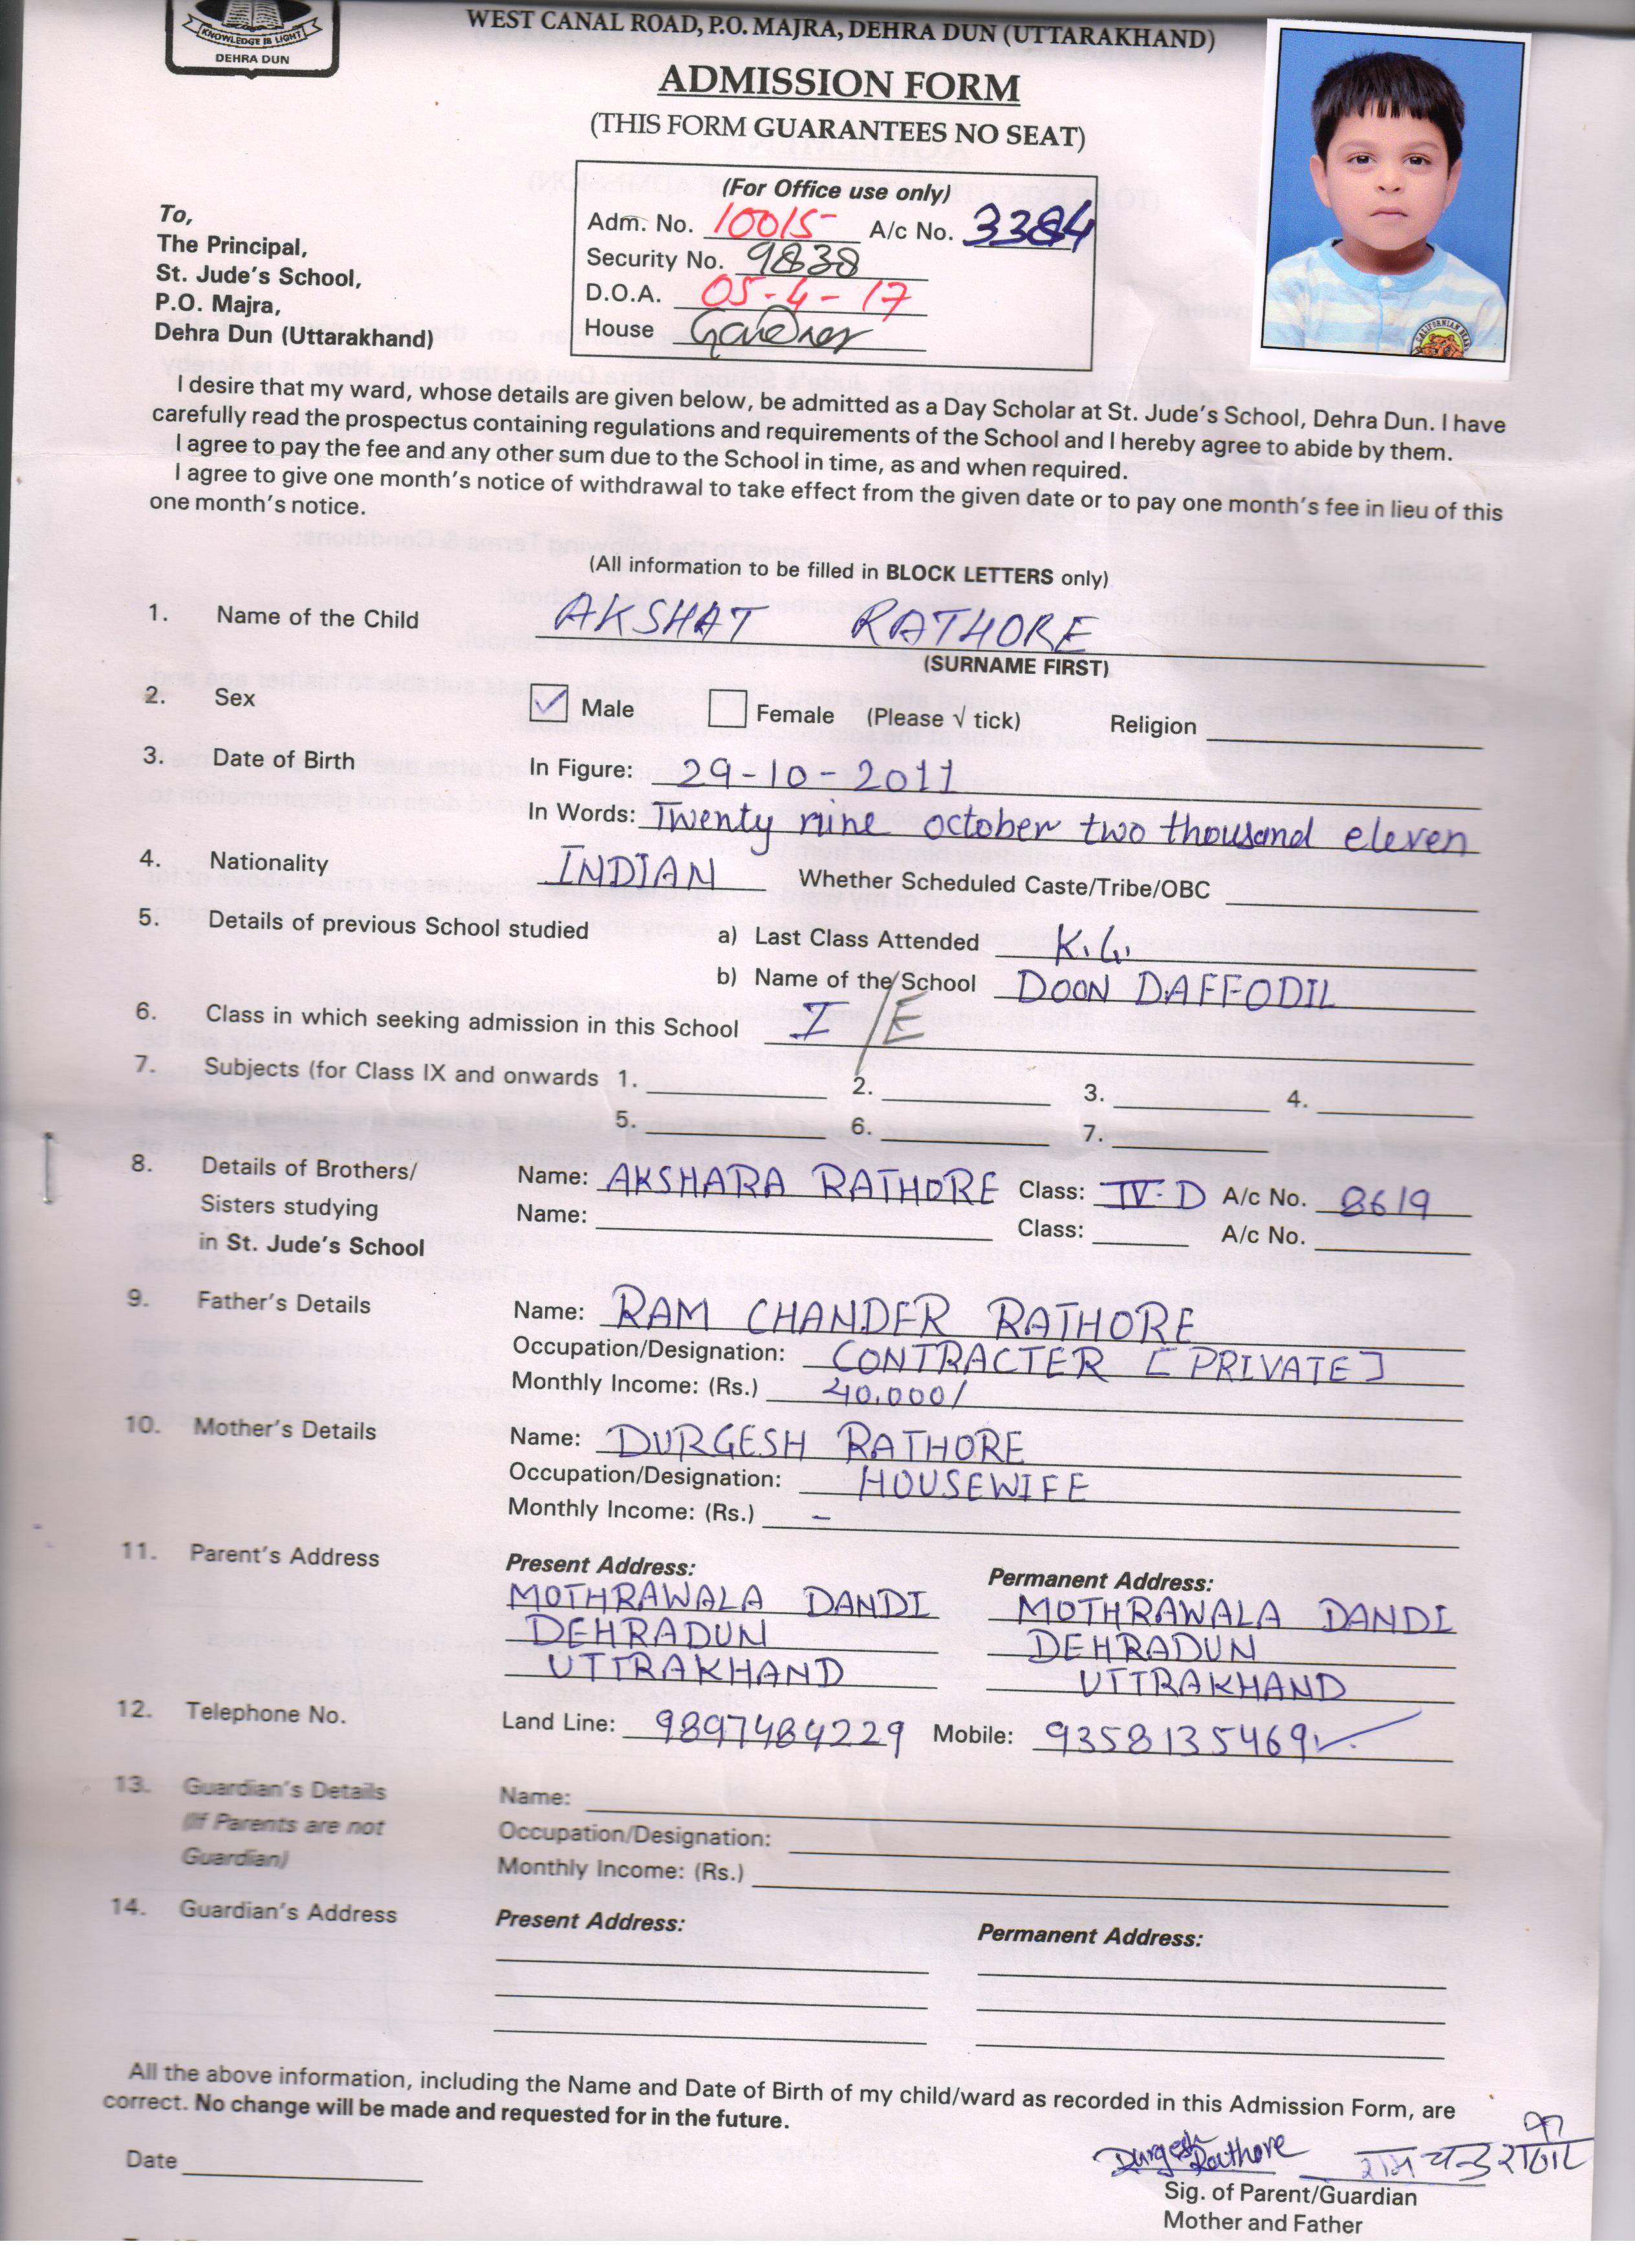 KNOWLEDGE IS LIGHT
DEHRA DUN
WEST CANAL ROAD, P.O. MAJRA, DEHRA DUN (UTTARAKHAND)
ADMISSION FORM
(THIS FORM GUARANTEES NO SEAT)
(For Office use only)
Adm. No. 10015 A/c No. 3384
Security No. 9838
D.O.A. 05-4-17
House Gardner
CALIFORNIAN BEAR
To,
The Principal,
St. Jude's School,
P.O. Majra,
Dehra Dun (Uttarakhand)
I desire that my ward, whose details are given below, be admitted as a Day Scholar at St. Jude's School, Dehra Dun. I have
carefully read the prospectus containing regulations and requirements of the School and I hereby agree to abide by them.
I agree to pay the fee and any other sum due to the School in time, as and when required.
I agree to give one month's notice of withdrawal to take effect from the given date or to pay one month's fee in lieu of this
one month's notice.
(All information to be filled in BLOCK LETTERS only)
1. Name of the Child AKSHAT RATHORE
(SURNAME FIRST)
2. Sex ✓ Male Female (Please √ tick) Religion
3. Date of Birth In Figure: 29-10-2011
In Words: Twenty nine october two thousand eleven
4. Nationality INDIAN Whether Scheduled Caste/Tribe/OBC
5. Details of previous School studied a) Last Class Attended K.G.
b) Name of the School DOON DAFFODIL
6. Class in which seeking admission in this School I/E
7. Subjects (for Class IX and onwards 1. 2. 3. 4.
5. 6. 7.
8. Details of Brothers/ Name: AKSHARA RATHORE Class: IV-D A/c No. 8619
Sisters studying Name: Class: A/c No.
in St. Jude's School
9. Father's Details Name: RAM CHANDER RATHORE
Occupation/Designation: CONTRACTER [PRIVATE]
Monthly Income: (Rs.) 40.000/
10. Mother's Details Name: DURGESH RATHORE
Occupation/Designation: HOUSEWIFE
Monthly Income: (Rs.) –
11. Parent's Address Present Address: Permanent Address:
MOTHRAWALA DANDI MOTHRAWALA DANDI
DEHRADUN DEHRADUN
UTTRAKHAND UTTRAKHAND
12. Telephone No. Land Line: 9897484229 Mobile: 9358135469 ✓
13. Guardian's Details Name:
(If Parents are not Occupation/Designation:
Guardian) Monthly Income: (Rs.)
14. Guardian's Address Present Address: Permanent Address:
All the above information, including the Name and Date of Birth of my child/ward as recorded in this Admission Form, are
correct. No change will be made and requested for in the future.
Date
Durgesh Rathore राम चन्द्र राठौर
Sig. of Parent/Guardian
Mother and Father